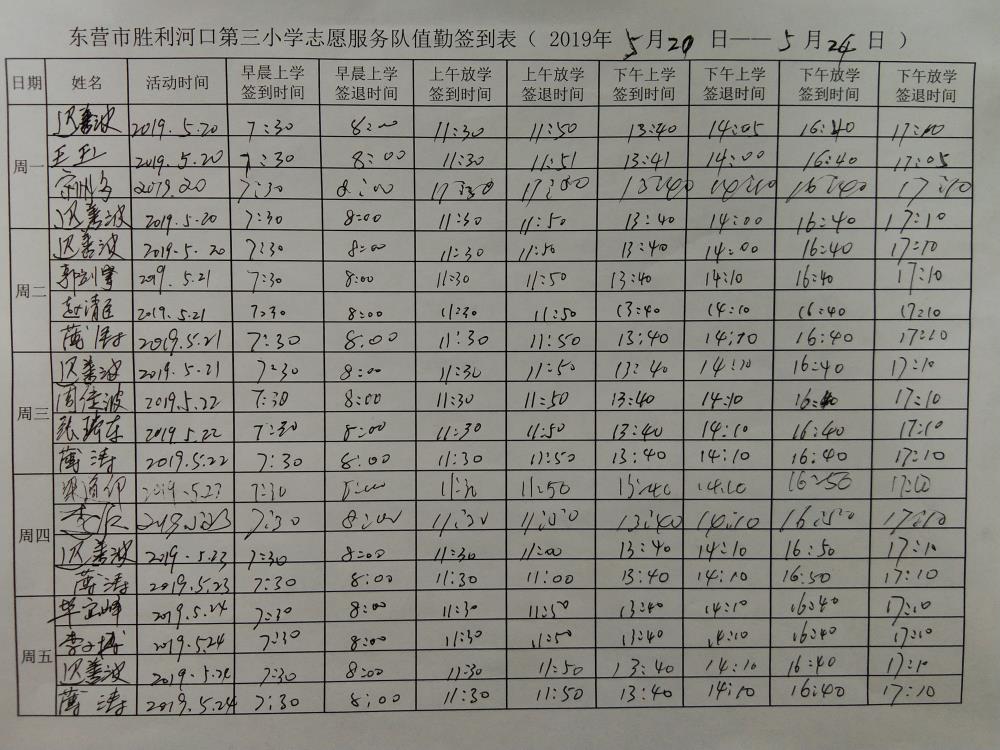 东营市胜利河口第三小学志愿服务队值勤签到表（ 2019年 5月20 日——5 月24 日 ）
日期 姓名 活动时间 早晨上学签到时间 早晨上学签退时间 上午放学签到时间 上午放学签退时间 下午上学签到时间 下午上学签退时间 下午放学签到时间 下午放学签退时间
周一 迟善波 2019.5.20 7:30 8:00 11:30 11:50 13:40 14:05 16:40 17:10
王玉 2019.5.20 7:30 8:00 11:30 11:51 13:41 14:00 16:40 17:05
2019.20 7:30 8:00 13:40 16:40 17:10
迟善波 2019.5.20 7:30 8:00 11:30 11:50 13:40 14:00 16:40 17:10
周二 迟善波 2019.5.20 7:30 8:00 11:30 11:50 13:40 14:00 16:40 17:10
2019.5.21 7:30 8:00 11:30 11:50 13:40 14:10 16:40 17:10
赵清 2019.5.21 7:30 8:00 11:30 11:50 13:40 14:10 16:40 17:10
薄涛 2019.5.21 7:30 8:00 11:30 11:50 13:40 14:10 16:40 17:10
周三 迟善波 2019.5.21 7:30 8:00 11:30 11:50 13:40 14:10 16:40 17:10
周佳波 2019.5.22 7:30 8:00 11:30 11:50 13:40 14:10 16:40 17:10
张 2019.5.22 7:30 8:00 11:30 11:50 13:40 14:10 16:40 17:10
薄涛 2019.5.22 7:30 8:00 11:30 11:50 13:40 14:10 16:40 17:10
周四 2019.5.23 7:30 8:00 11:30 11:50 13:40 14:10 16:50 17:10
李 2019.5.23 7:30 8:00 11:30 11:50 13:40 14:10 16:50 17:10
迟善波 2019.5.23 7:30 8:00 11:30 11:00 13:40 14:10 16:50 17:10
薄涛 2019.5.23 7:30 8:00 11:30 11:00 13:40 14:10 16:50 17:10
周五 毕宝峰 2019.5.24 7:30 8:00 11:30 11:50 13:40 14:10 16:40 17:10
李 2019.5.24 7:30 8:00 11:30 11:50 13:40 14:10 16:40 17:10
迟善波 2019.5.24 7:30 8:00 11:30 11:50 13:40 14:10 16:40 17:10
薄涛 2019.5.24 7:30 8:00 11:30 11:50 13:40 14:10 16:40 17:10